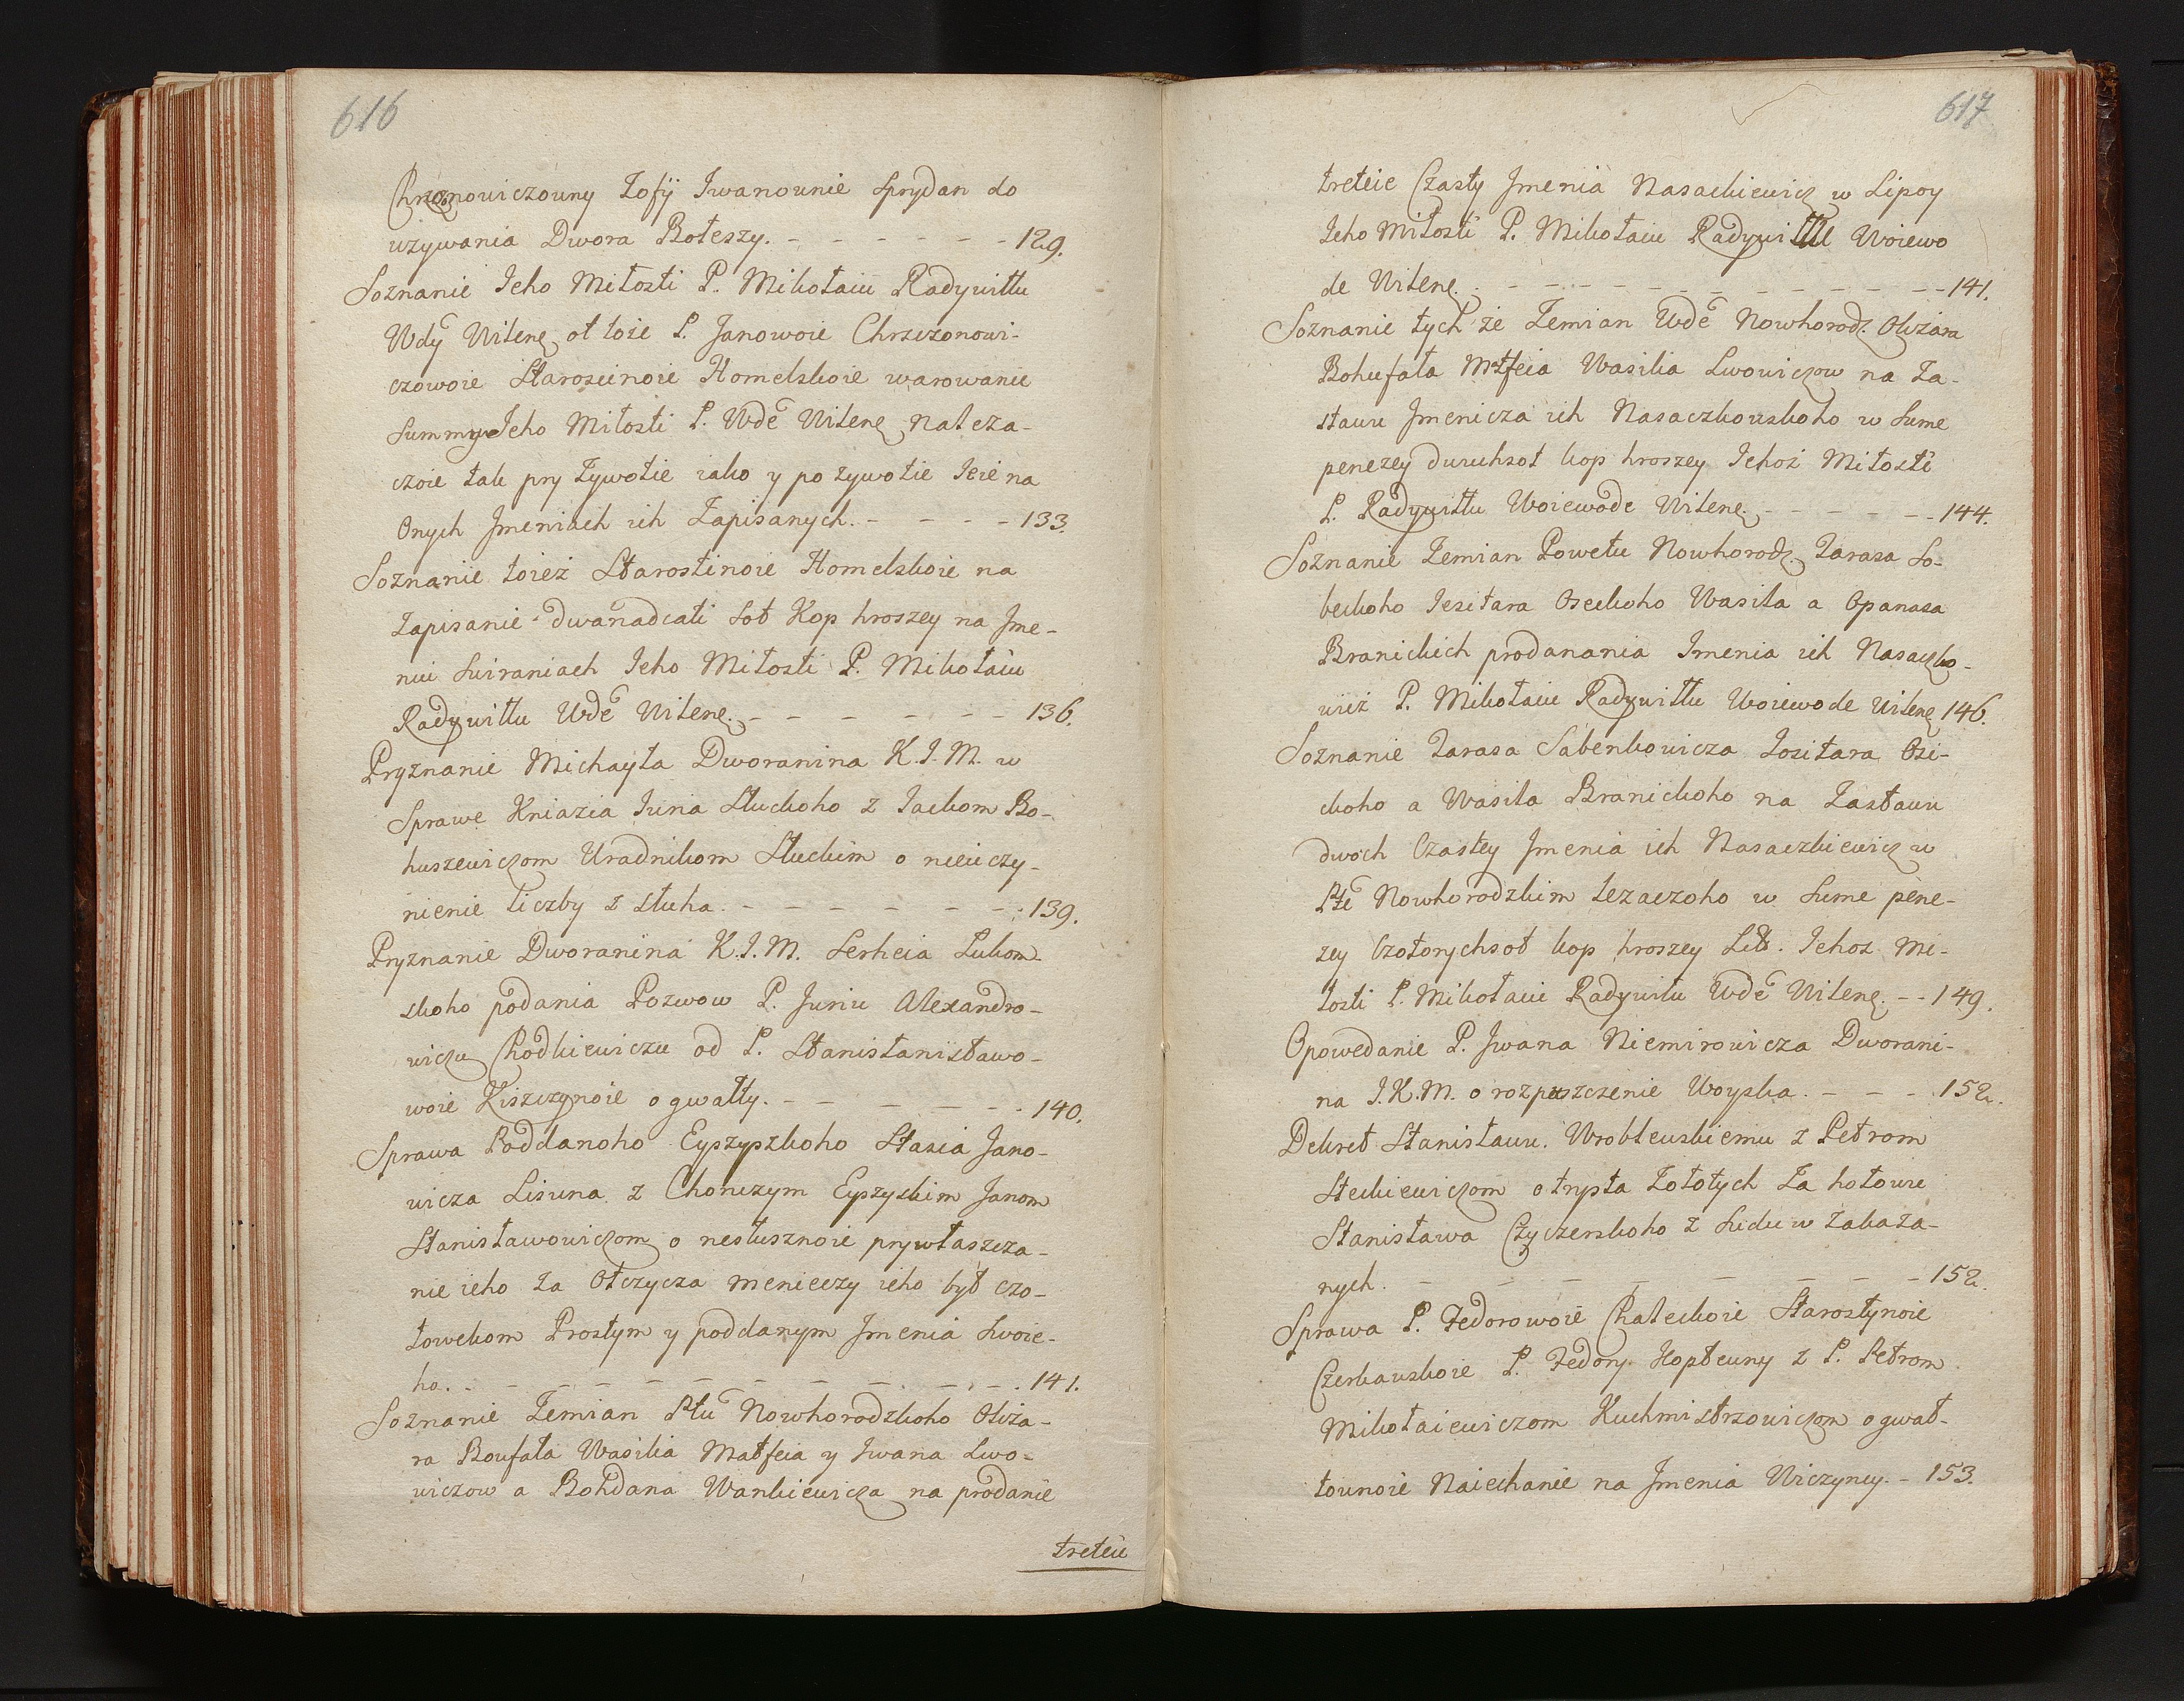 616
Chrzczonowiczowny Zofij Iwanownie Sprydan do
uzywania Dwora Boteszy. - - - - - - 129.
Soznanie Jeho Miłosti P. Mikołaiu Radywiłłu
Wdy Wilenę ot toie P. Janowoie Chrzczonowi-
czowoie Staroscinoie Homelskoie warowanie
Summy Jeho Miłosti P. Wde Wilenę, należa-
czoie tak pry Zywotie iako y po zywotie Ieie na
Onych Jmeniach ich Zapisanych. - - - - 133.
Soznanie toież Starostinoie Homelskoie na
Zapisanie dwanadcati sot Kop hroszey na Jme-
niu Swiraniach Jeho Miłosti P. Mikołaiu
Radywiłłu Wde Wilenę. - - - - - - 136.
Pryznanie Michayła Dworanina K.J.M. w
Sprawe Kniazia Juria Słuckoho z Jackom Bo-
huszewiczom Uradnikom Słuckim o nieuczy-
nienie liczby z słuha. - - - - - - - 139.
Pryznanie Dworanina K.J.M. Serheia Lukom-
skoho podania Pozwow P. Juriu Alexandro-
wiczu Chodkiewiczu od P. Stanistanisławo-
woie Kiszczynoie o gwałty. - - - - - - 140.
Sprawa Poddanoho Eyszyszkoho Stasia Jano-
wicza Lisuna z Chonczym Eyszyskim Janom
Stanisławowiczom o nesłusznoie prywłaszcza-
nie ieho za Otczycza menieczy ieho być czo-
łowekom Prostym y poddanym Jmenia Swoie-
ho. - - - - - - - - - - - - 141.
Soznanie Zemian Ptu Nowhorodzkoho Oliza-
ra Boufała Wasilia Matfeia y Iwana Lwo-
wiczow a Bohdana Wankiewicza na prodanie
treteie
617
treteie Czasty Jmenia Nasackiewicz w Lipoy
Jeho Miłosti P. Mikołaiu Radywiłłu Woiewo
de Wilenę. - - - - - - - - - - - 141.
Soznanie tych że Zemian Wde Nowhorodz. Olizara
Bohufała Matfeia Wasilia Lwowiczow na Za-
stawu Jmenicza ich Nasaczkowskoho w Sume
penezey dwuchsot kop hroszey Jehoż Miłosti
P. Radywiłłu Woiewode Wilenę. - - - - - - 144.
Soznanie Zemian Powetu Nowhorodz. Tarasa So-
beckoho Iesifara Oseckoho Wasila a Opanasa
Branickich prodanania Jmenia ich Nasaczko-
wicz P. Mikołaiu Radywiłłu Woiewode Wilenę 146.
Soznanie Tarasa Sabenkowicza Iosifara Osi-
ckoho a Wasila Branickoho na Zastawu
dwoch Czastey Jmenia ich Nasaczkiewicz w
Pte Nowhorodzkim lezaczoho w Sume pene-
zey Czotorychsot kop hroszey Lit. Jehoz Mi-
łosti P. Mikołaiu Radywiłu Wde Wilenę. - - 149.
Opowedanie P. Jwana Niemirowicza Dworani-
na J.K.M. o rozpuszczenie Woyska. - - - 152.
Dekret Stanisławu Wroblewskiemu z Petrom
Steckiewiczom o trysta Zołotych za hołowu
Stanisława Czyczerskoho z Sudu w zakaza-
nych. - - - - - - - - 152.
Sprawa P. Fedorowoie Chaleckoie Starostynoie
Czerkauskoie P. Fedory Hopteuny z P. Petrom
Mikołaiewiczom Kuchmistrzowiczom o gwał-
townoie Naiechanie na Jmenia Wiczyney. - 153.